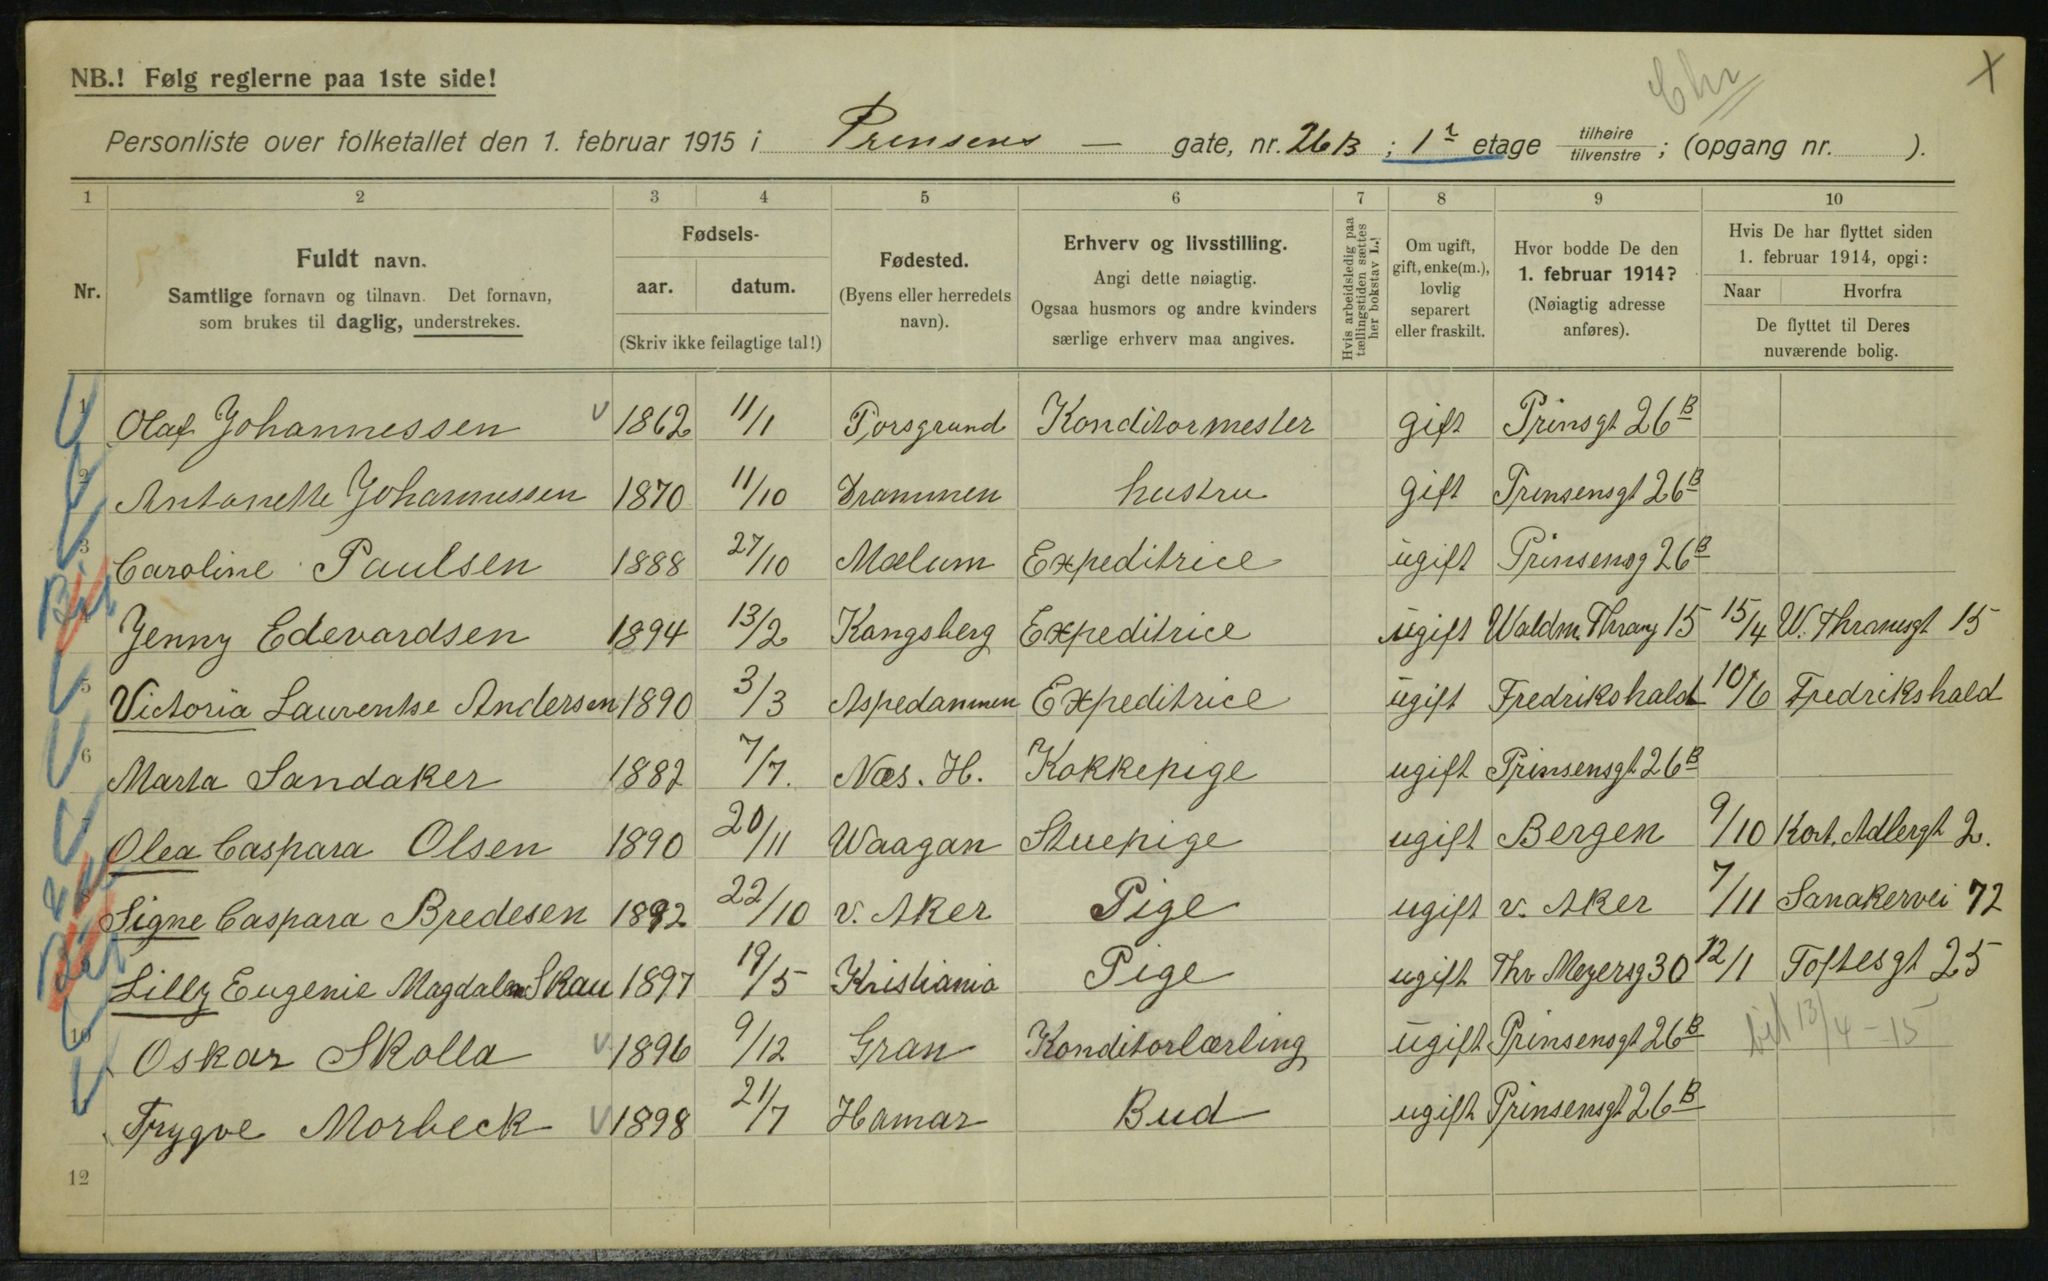 Chr
X
NB.! Følg reglerne paa 1ste side!
Personliste over folketallet den 1. februar 1915 i Prinsens — gate, nr. 26B ; 1ʳ etage tilhøire tilvenstre ; (opgang nr. ).
1 2 3 4 5 6 7 8 9 10
Nr.
Fuldt navn.
Samtlige fornavn og tilnavn. Det fornavn,
som brukes til daglig, understrekes.
Fødsels-
aar. datum.
(Skriv ikke feilagtige tal!)
Fødested.
(Byens eller herredets
navn).
Erhverv og livsstilling.
Angi dette nøiagtig.
Ogsaa husmors og andre kvinders
særlige erhverv maa angives.
Hvis arbeidsledig paa
tællingstiden sættes
her bokstav L.!
Om ugift,
gift, enke(m.),
lovlig
separert
eller fraskilt.
Hvor bodde De den
1. februar 1914?
(Nøiagtig adresse
anføres).
Hvis De har flyttet siden
1. februar 1914, opgi:
Naar Hvorfra
De flyttet til Deres
nuværende bolig.
1 Olaf Johannessen 1862 11/1 Porsgrund Konditormester gift Prinsgt 26B
2 Antonette Johannessen 1870 11/10 Drammen hustru gift Prinsensgt 26B
3 Caroline Paulsen 1888 27/10 Mælum Expeditrice ugift Prinsensg 26B
4 Jenny Edevardsen 1894 13/2 Kongsberg Expeditrice ugift Waldm. Thrany 15 15/4 W. Thranesgt 15
5 Victoria Laurentse Andersen 1890 3/3 Aspedammen Expeditrice ugift Fredrikshald 10/6 Fredrikshald
6 Marta Sandaker 1882 7/7. Næs. H. Kokkepige ugift Prinsensgt 26B
Olea Caspara Olsen 1890 20/11 Waagan Stuepige ugift Bergen 9/10 Kort. Adlergt 2.
Signe Caspara Bredesen 1892 22/10 v. Aker Pige ugift v. Aker 7/11 Sanakervei 72
Lilly Eugenie Magdalene Skau 1897 19/5 Kristiania Pige ugift Thv Meyersg 30 12/1 Toftesgt 25
10 Oskar Skolla 1896 9/12 Gran Konditorlærling ugift Prinsensgt 26B 13/4-15
Trygve Morbeck 1898 21/7 Hamar Bud ugift Prinsensgt 26B
12